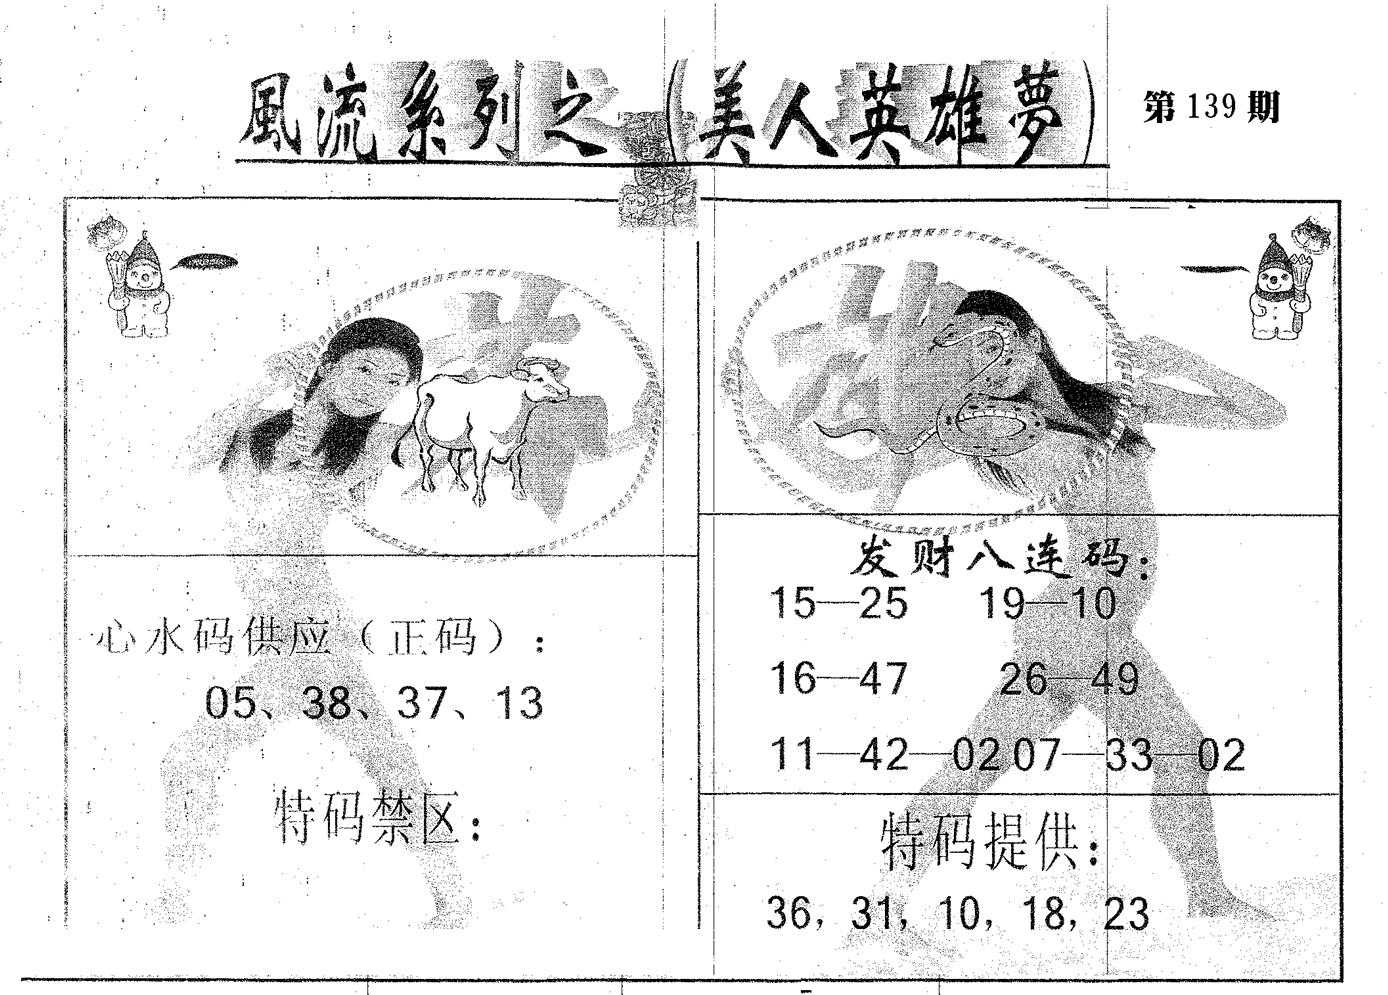 風流系列之（美人英雄夢）
第139期
心水码供应（正码）：
05、38、37、13
特码禁区：
发财八连码：
15—25 19—10
16—47 26—49
11—42—02 07—33—02
特码提供：
36，31，10，18，23